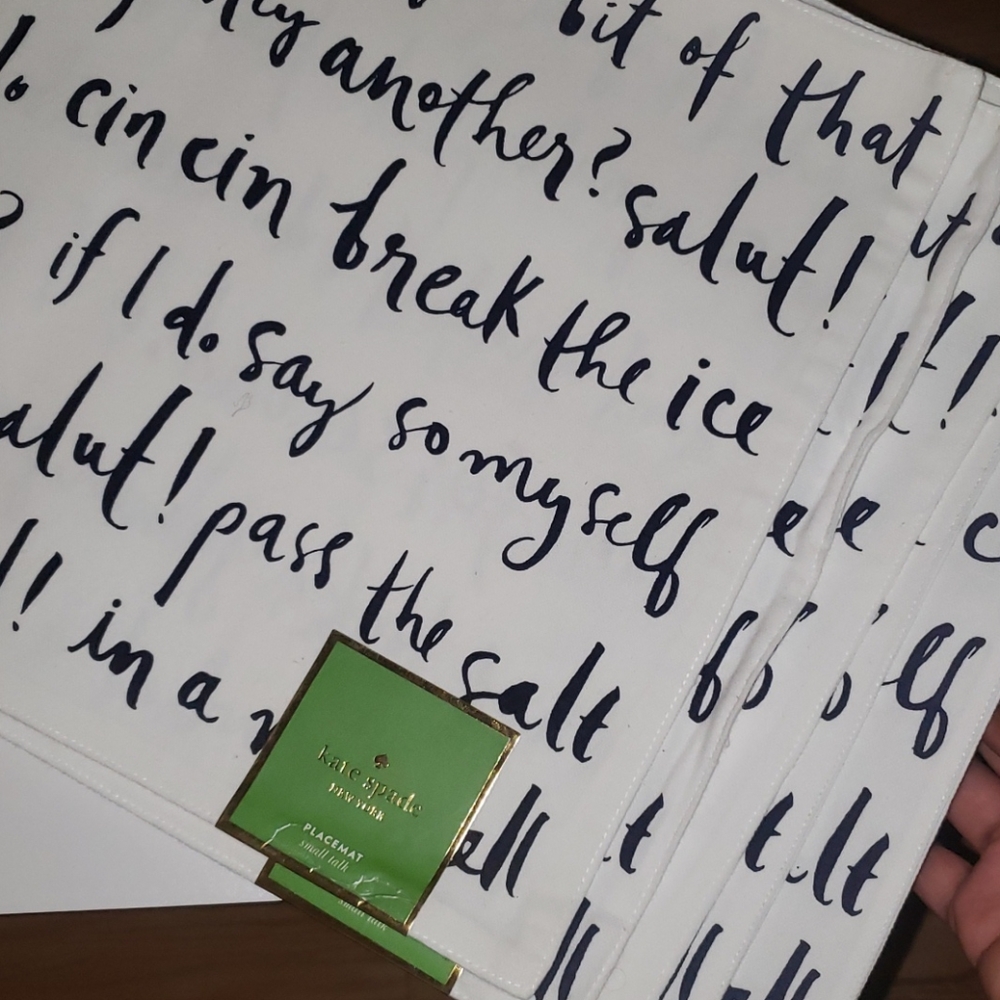 bit of that
another? salut!
cin cin break the ice
if I do say so myself
salut! pass the salt
in a
kate spade
NEW YORK
PLACEMAT
small talk
small talk